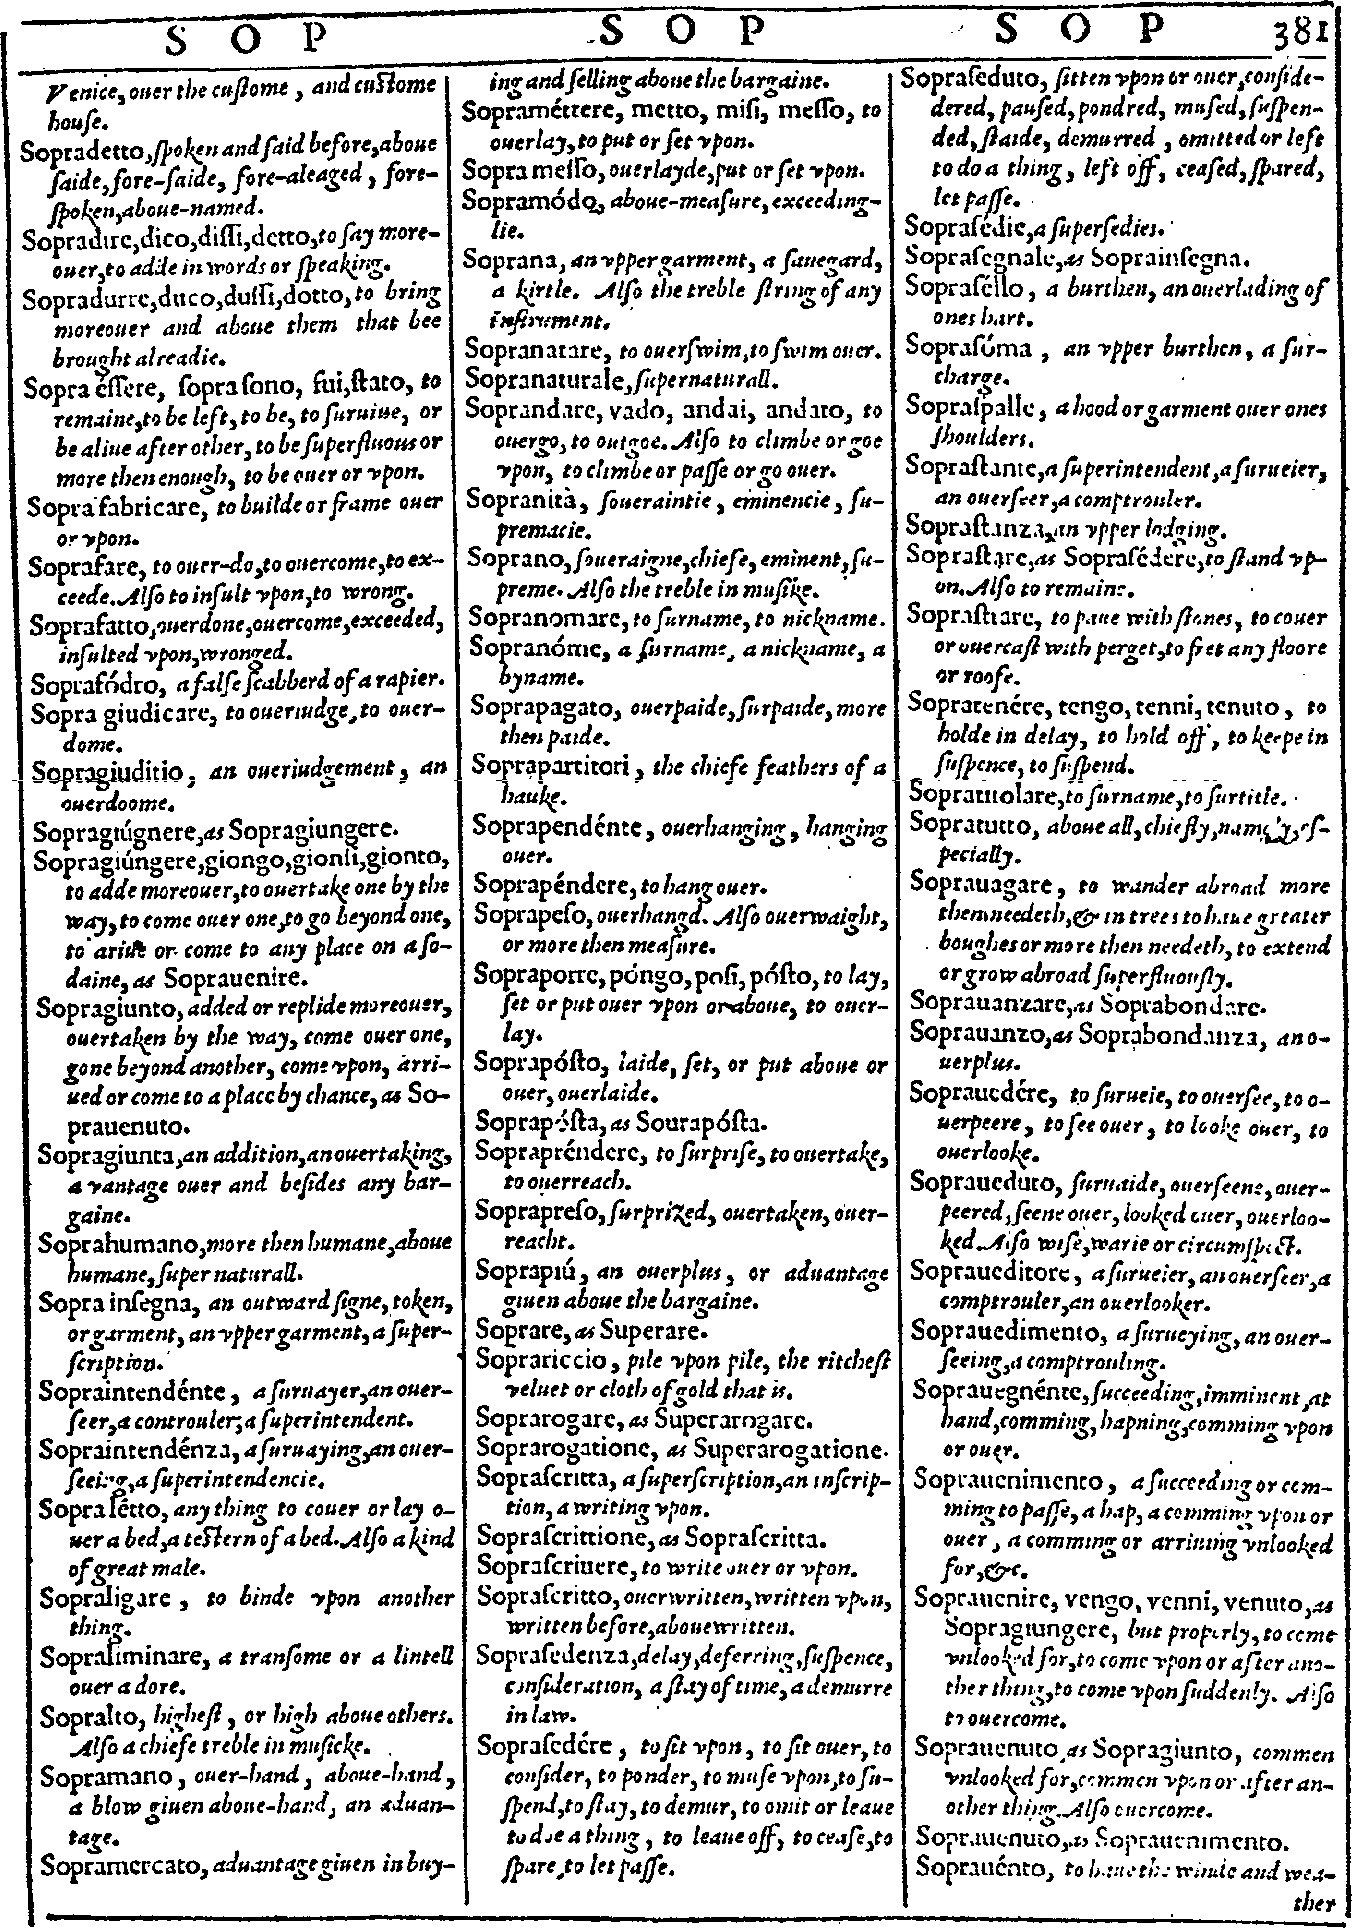 S O P
S O P
S O P
381
Venice, ouer the cuſtome, and cuſtome
houſe.
Sopradetto, ſpoken and ſaid before, aboue
ſaide, fore-ſaide, fore-aleaged, fore-
ſpoken, aboue-named.
Sopradire, dico, diſſi, detto, to ſay more-
ouer, to adde in words or ſpeaking.
Sopradurre, duco, duſſi, dotto, to bring
moreouer and aboue them that bee
brought alreadie.
Sopra éſſere, ſopra ſono, fui, ſtato, to
remaine, to be left, to be, to ſuruiue, or
be aliue after other, to be ſuperfluous or
more then enough, to be ouer or vpon.
Sopra fabricare, to builde or frame ouer
or vpon.
Soprafare, to ouer-do, to ouercome, to ex-
ceede. Alſo to inſult vpon, to wrong.
Soprafatto, ouerdone, ouercome, exceeded,
inſulted vpon, wronged.
Soprafódro, a falſe ſcabberd of a rapier.
Sopra giudicare, to oueriudge, to ouer-
dome.
Sopragiuditio, an oueriudgement, an
ouerdoome.
Sopragiúgnere, as Sopragiungere.
Sopragiúngere, giongo, gionſi, gionto,
to adde moreouer, to ouertake one by the
way, to come ouer one, to go beyond one,
to ariſe or come to any place on a ſo-
daine, as Soprauenire.
Sopragiunto, added or replide moreouer,
ouertaken by the way, come ouer one,
gone beyond another, come vpon, arri-
ued or come to a place by chance, as So-
prauenuto.
Sopragiunta, an addition, an ouertaking,
a vantage ouer and beſides any bar-
gaine.
Soprahumano, more then humane, aboue
humane, ſupernaturall.
Sopra inſegna, an outward ſigne, token,
or garment, an vpper garment, a ſuper-
ſcription.
Sopraintendénte, a ſuruayer, an ouer-
ſeer, a controuler, a ſuperintendent.
Sopraintendénza, a ſuruaying, an ouer-
ſeeing, a ſuperintendencie.
Sopralétto, any thing to couer or lay o-
uer a bed, a teſtern of a bed. Alſo a kind
of great male.
Sopraligare, to binde vpon another
thing.
Sopraliminare, a tranſome or a lintell
ouer a dore.
Sopralto, higheſt, or high aboue others.
Alſo a chiefe treble in muſicke.
Sopramano, ouer-hand, aboue-hand,
a blow giuen aboue-hand, an aduan-
tage.
Sopramercato, aduantage giuen in buy-
ing and ſelling aboue the bargaine.
Sopraméttere, metto, miſi, meſſo, to
ouerlay, to put or ſet vpon.
Sopra meſſo, ouerlayde, put or ſet vpon.
Sopramódo, aboue-meaſure, exceeding-
lie.
Soprana, an vpper garment, a ſauegard,
a kirtle. Alſo the treble ſtring of any
inſtrument.
Sopranatare, to ouerſwim, to ſwim ouer.
Sopranaturale, ſupernaturall.
Soprandare, vado, andai, andato, to
ouergo, to outgoe. Alſo to climbe or goe
vpon, to climbe or paſſe or go ouer.
Sopranità, ſoueraintie, eminencie, ſu-
premacie.
Soprano, ſoueraigne, chiefe, eminent, ſu-
preme. Alſo the treble in muſike.
Sopranomare, to ſurname, to nickname.
Sopranóme, a ſurname, a nickname, a
byname.
Soprapagato, ouerpaide, ſurpaide, more
then paide.
Soprapartitori, the chiefe feathers of a
hauke.
Soprapendénte, ouerhanging, hanging
ouer.
Soprapéndere, to hang ouer.
Soprapeſo, ouerhangd. Alſo ouerwaight,
or more then meaſure.
Sopraporre, póngo, poſi, póſto, to lay,
ſet or put ouer vpon or aboue, to ouer-
lay.
Soprapóſto, laide, ſet, or put aboue or
ouer, ouerlaide.
Soprapóſta, as Sourapóſta.
Soprapréndere, to ſurpriſe, to ouertake,
to ouerreach.
Sopraprefo, ſurprized, ouertaken, ouer-
reacht.
Soprapiú, an ouerplus, or aduantage
giuen aboue the bargaine.
Soprare, as Superare.
Soprariccio, pile vpon pile, the ritcheſt
veluet or cloth of gold that is.
Soprarogare, as Superarogare.
Soprarogatione, as Superarogatione.
Sopraſcritta, a ſuperſcription, an inſcrip-
tion, a writing vpon.
Sopraſcrittione, as Sopraſcritta.
Sopraſcriuere, to write ouer or vpon.
Sopraſcritto, ouerwritten, written vpon,
written before, abouewritten.
Sopraſedenza, delay, deferring, ſuſpence,
conſideration, a ſtay of time, a demurre
in law.
Sopraſedére, to ſit vpon, to ſit ouer, to
conſider, to ponder, to muſe vpon, to ſu-
ſpend, to ſtay, to demur, to omit or leaue
to doe a thing, to leaue off, to ceaſe, to
ſpare, to let paſſe.
Sopraſeduto, ſitten vpon or ouer, conſide-
dered, pauſed, pondred, muſed, ſuſpen-
ded, ſtaide, demurred, omitted or left
to do a thing, left off, ceaſed, ſpared,
let paſſe.
Sopraſédie, a ſuperſedies.
Sopraſegnale, as Soprainſegna.
Sopraſéllo, a burthen, an ouerlading of
ones hart.
Sopraſóma, an vpper burthen, a ſur-
charge.
Sopraſpalle, a hood or garment ouer ones
ſhoulders.
Sopraſtante, a ſuperintendent, a ſurueier,
an ouerſeer, a comptrouler.
Sopraſtanza, an vpper lodging.
Sopraſtare, as Sopraſédere, to ſtand vp-
on. Alſo to remaine.
Sopraſtrare, to paue with ſtones, to couer
or ouercaſt with perget, to fret any floore
or roofe.
Sopratenére, tengo, tenni, tenuto, to
holde in delay, to hold off, to keepe in
ſuſpence, to ſuſpend.
Sopratitolare, to ſurname, to ſurtitle.
Sopratutto, aboue all, chiefly, namely, eſ-
pecially.
Soprauagare, to wander abroad more
them needeth, & in trees to haue greater
boughes or more then needeth, to extend
or grow abroad ſuperfluouſly.
Soprauanzare, as Soprabondare.
Soprauanzo, as Soprabondanza, an o-
uerplus.
Soprauedére, to ſurueie, to ouerſee, to o-
uerpeere, to ſee ouer, to looke ouer, to
ouerlooke.
Soprauẹduto, ſuruaide, ouerſeene, ouer-
peered, ſeene ouer, looked ouer, ouerloo-
ked. Alſo wiſe, warie or circumſpect.
Soprauẹditore, a ſurueier, an ouerſeer, a
comptrouler, an ouerlooker.
Soprauedimento, a ſurueying, an ouer-
ſeeing, a comptrouling.
Soprauegnénte, ſucceeding, imminent, at
hand, comming, hapning, comming vpon
or ouer.
Soprauenimento, a ſucceeding or com-
ming to paſſe, a hap, a comming vpon or
ouer, a comming or arriuing vnlooked
for, &c.
Soprauenire, vengo, venni, venuto, as
Sopragiungere, but properly, to come
vnlooked for, to come vpon or after ano-
ther thing, to come vpon ſuddenly. Alſo
to ouercome.
Soprauenuto, as Sopragiunto, commen
vnlooked for, commen vpon or after an-
other thing. Alſo ouercome.
Soprauenuto, as Soprauenimento.
Soprauénto, to haue the winde and wea-
ther